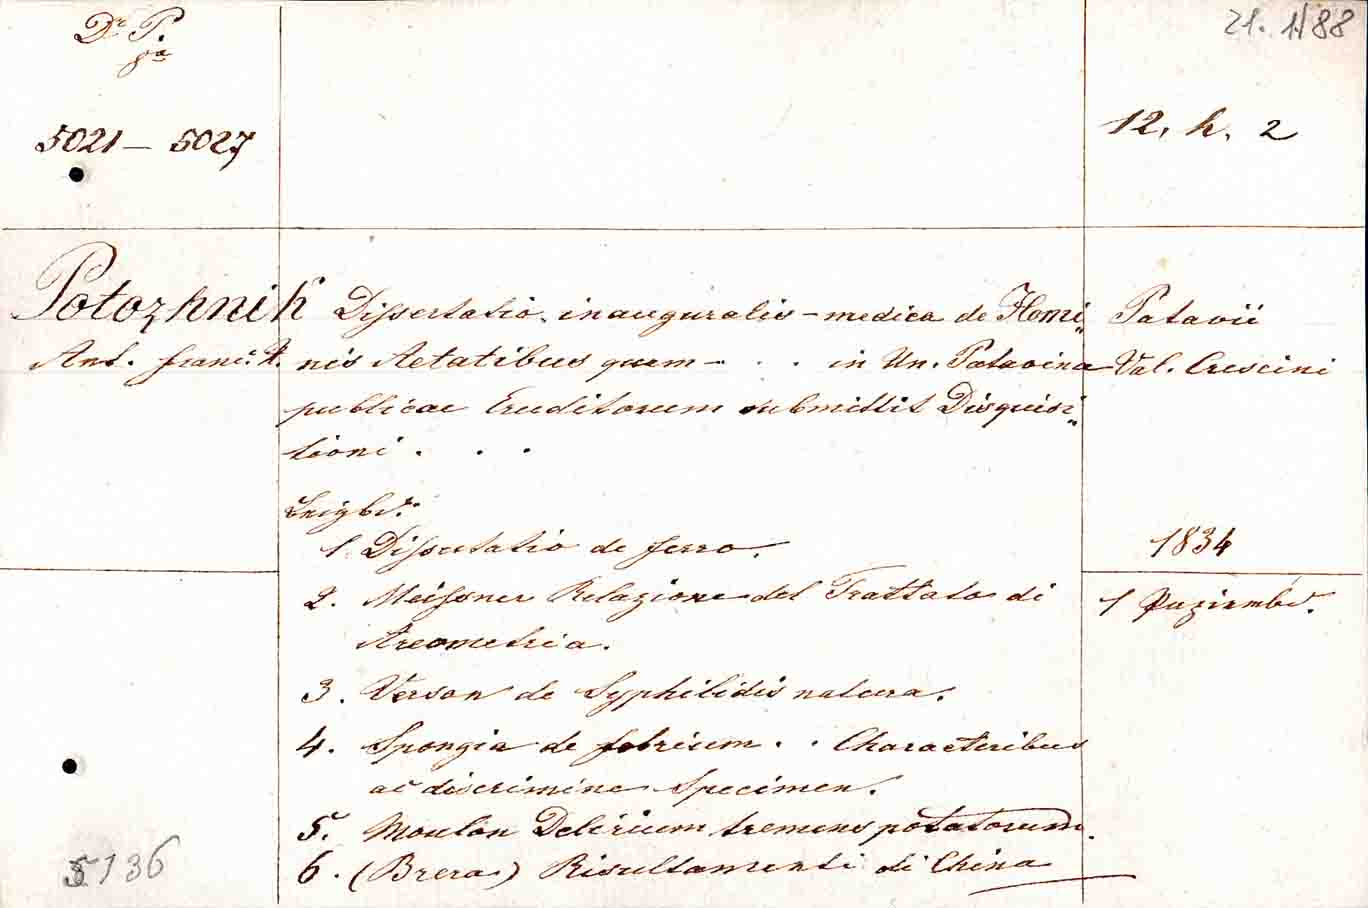 Dr. P.
8va
21. 1/88
5021 – 5027
12. h. 2
Potozhnik
Ant. Franc. X.
Dissertatio inauguralis – medica de Homi„
nis Aetatibus quam – . . in Un. Patavina
publicae Eruditorum submittit Disquisi„
tioni . . .
Patavii
Val. Crescini
1834
1 Dissertatio de ferro.
2. Meissner Relazione del Trattato di
Areometria.
3. Verson de Syphilidis natura.
4. Spongia de febrium . . Characteribus
ac discrimine Specimen.
5. Moulon Delirium tremens potatorum.
6. (Brera) Risultamenti di China
5136